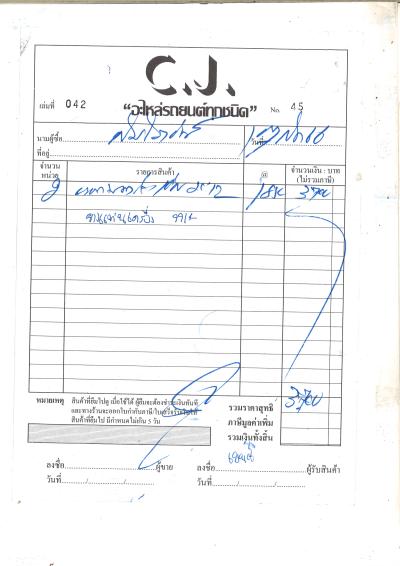 C.J.
เล่มที่ 042 "อะไหล่รถยนต์ทุกชนิด" No. 45
นามผู้ซื้อ วันที่
ที่อยู่
จำนวนหน่วย รายการสินค้า @ จำนวนเงิน : บาท (ไม่รวมภาษี)
2 1850 3700
หมายเหตุ สินค้าที่ยืมไปดู เมื่อใช้ได้ ผู้ยืมจะต้องชำระเงินทันที
และทางร้านจะออกใบกำกับภาษี/ใบเสร็จรับเงินให้
สินค้าที่ยืมไป มีกำหนดไม่เกิน 5 วัน
รวมราคาสุทธิ 3700
ภาษีมูลค่าเพิ่ม
รวมเงินทั้งสิ้น
ลงชื่อ ผู้ขาย ลงชื่อ ผู้รับสินค้า
วันที่ / / วันที่ / /